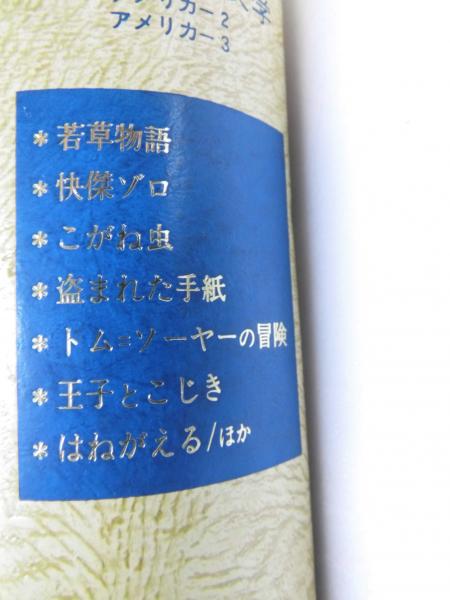 アメリカー2
アメリカー3
*若草物語
*快傑ゾロ
*こがね虫
*盗まれた手紙
*トム=ソーヤーの冒険
*王子とこじき
*はねがえる/ほか